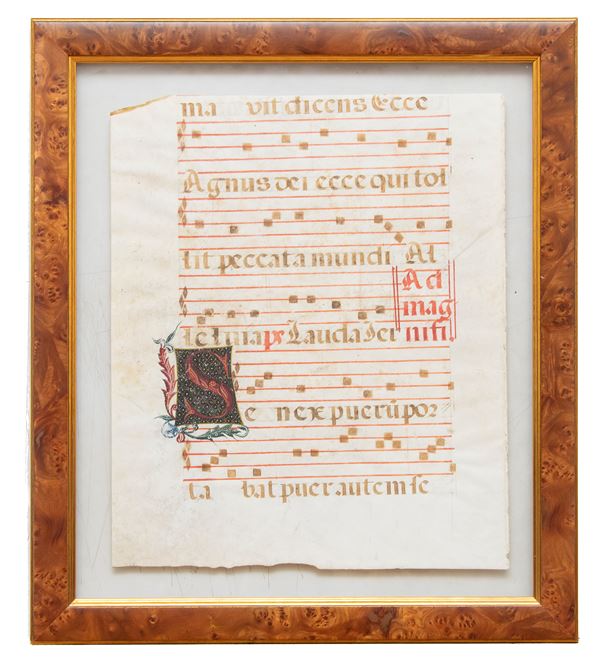 ma vit dicens Ecce
Agnus dei ecce qui tol
lit peccata mundi Al
Ad
mag
nifi.
le luia ps Lauda Jer
Se nex puerū por
ta bat puer autem se